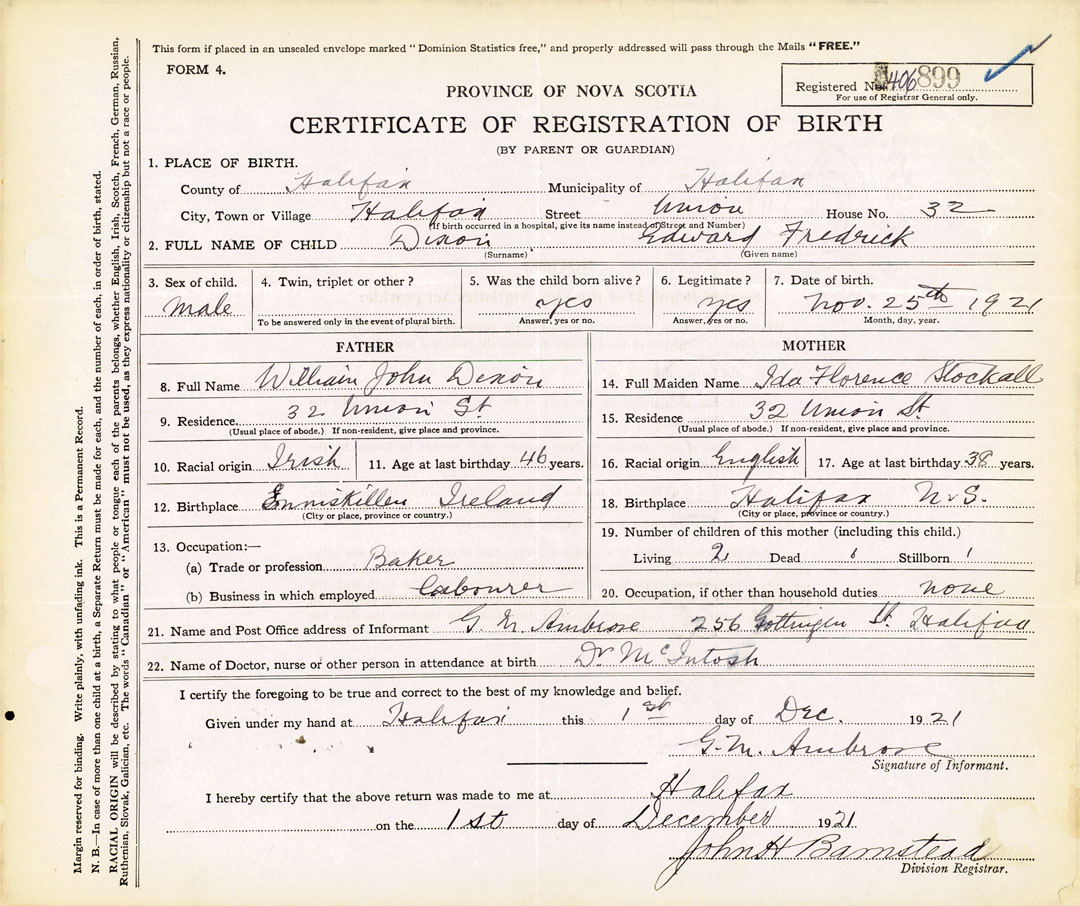 This form if placed in an unsealed envelope marked "Dominion Statistics free," and properly addressed will pass through the Mails "FREE."
FORM 4.
Registered No. 406899
For use of Registrar General only.
PROVINCE OF NOVA SCOTIA
CERTIFICATE OF REGISTRATION OF BIRTH
(BY PARENT OR GUARDIAN)
1. PLACE OF BIRTH.
County of Halifax Municipality of Halifax
City, Town or Village Halifax Street Union House No. 32
(If birth occurred in a hospital, give its name instead of Street and Number)
2. FULL NAME OF CHILD Dixon Edward Fredrick
(Surname) (Given name)
3. Sex of child. 4. Twin, triplet or other? 5. Was the child born alive? 6. Legitimate? 7. Date of birth.
male yes yes Nov. 25th 1921
To be answered only in the event of plural birth. Answer, yes or no. Answer, yes or no. Month, day, year.
FATHER
8. Full Name William John Dixon
9. Residence. 32 Union St
(Usual place of abode.) If non-resident, give place and province.
10. Racial origin Irish 11. Age at last birthday 46 years.
12. Birthplace Enniskillen Ireland
(City or place, province or country.)
13. Occupation:—
(a) Trade or profession Baker
(b) Business in which employed Labourer
MOTHER
14. Full Maiden Name Ida Florence Stockall
15. Residence 32 Union St
(Usual place of abode.) If non-resident, give place and province.
16. Racial origin English 17. Age at last birthday 38 years.
18. Birthplace Halifax N.S.
(City or place, province or country.)
19. Number of children of this mother (including this child.)
Living 2 Dead Stillborn
20. Occupation, if other than household duties none
21. Name and Post Office address of Informant G. M. Ambrose 256 Gottingen St. Halifax
22. Name of Doctor, nurse or other person in attendance at birth Dr McIntosh
I certify the foregoing to be true and correct to the best of my knowledge and belief.
Given under my hand at Halifax this 1st day of Dec. 1921
G. M. Ambrose
Signature of Informant.
I hereby certify that the above return was made to me at Halifax
on the 1st day of December 1921
John H Barnstead
Division Registrar.
Margin reserved for binding. Write plainly, with unfading ink. This is a Permanent Record.
N. B.—In case of more than one child at a birth, a Separate Return must be made for each, and the number of each, in order of birth, stated.
RACIAL ORIGIN will be described by stating to what people or tongue each of the parents belongs, whether English, Irish, Scotch, French, German, Russian,
Ruthenian, Slovak, Galician, etc. The words "Canadian" or "American" must not be used, as they express nationality or citizenship but not a race or people.